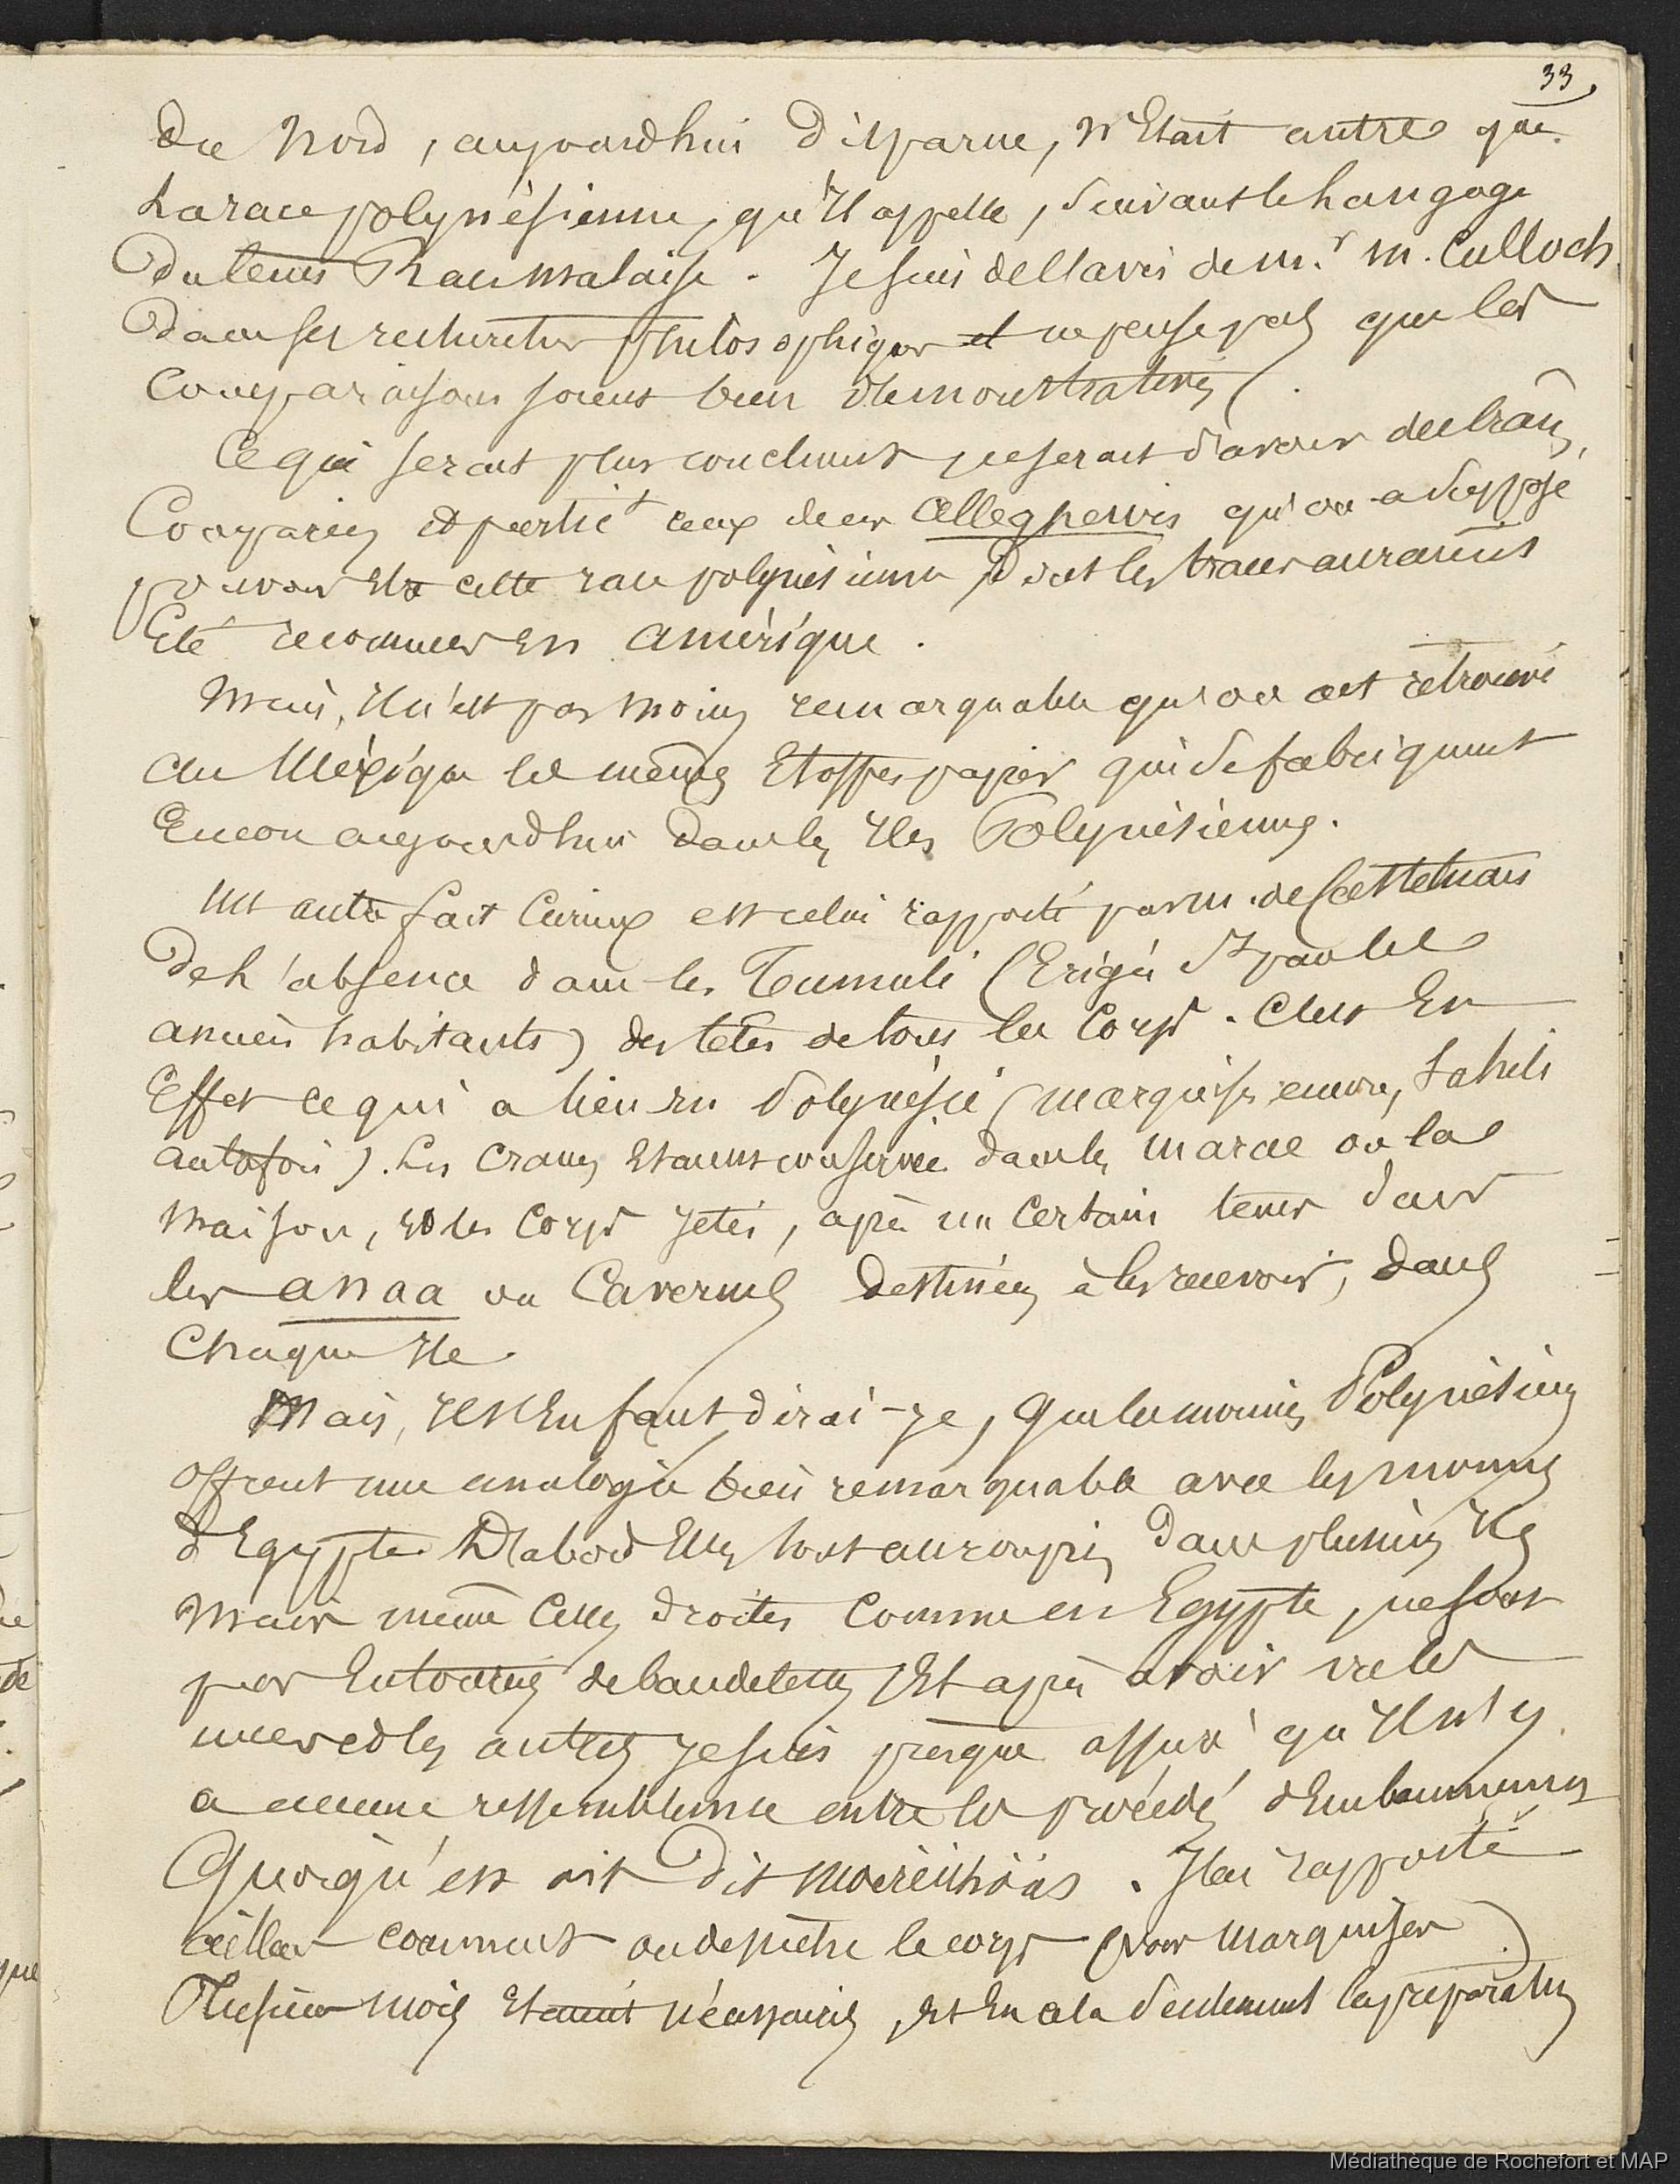 33
du Nord, aujourdhui disparue, n'Etait autre que
La race polynésienne, qu'Il appelle, suivant le Langage
du tems Race malaise. Je suis de l'avis de M.r M. Culloch
dans ses recherches philosophiques et ne pense pas que les
Comparaisons soient bien démonstratives.
Ce qui serait plus concluant ce serait d'avoir des crânes,
Comparés et partic.t ceux de ces Alleghewis qu'on a supposé
pouvoir Etre cette race polynésienne dont les traces auraient
Eté reconnues En amérique.
Mais, Il n'est pas moins remarquable qu'on ait retrouvé
au Méxique les mêmes Etoffes papier qui se fabriquent
Encore aujourdhui dans les Iles Polynésiennes.
Un autre fait Curieux est celui rapporté par M. de
De L'absence dans les Tumuli (Erigés par les
anciens habitants) des têtes de tous les Corps. C'est En
Effet ce qui a lieu en Polynésie (marquises encore, Tahiti
autrefois). Les Crânes Etaient conservés dans les marae ou la
maison, et les Corps jetés, après un Certain tems dans
les anaa ou Cavernes destinées à les recevoir, dans
Chaque Ile.
Mais, Il s'En faut dirai-je, que les momies Polynésiennes
offrent une analogie bien remarquable avec les momies
d'Egypte. D'abord Elles sont accroupies dans plusieurs Iles
mais même Celles droites Comme en Egypte, ne sont
pas Entourées de bandelettes Et après avoir vu les
unes et les autres je suis presque assuré qu'Il n'y
a aucune ressemblance entre les procédés d'Embaumement
Quoiqu'en ait dit Moerenhoüs. J'ai rapporté
ailleurs comment on desséche le corps (voir Marquises)
Plusieurs mois Etaient nécessaires, Et En cela seulement les préparations
Médiathèque de Rochefort et MAP